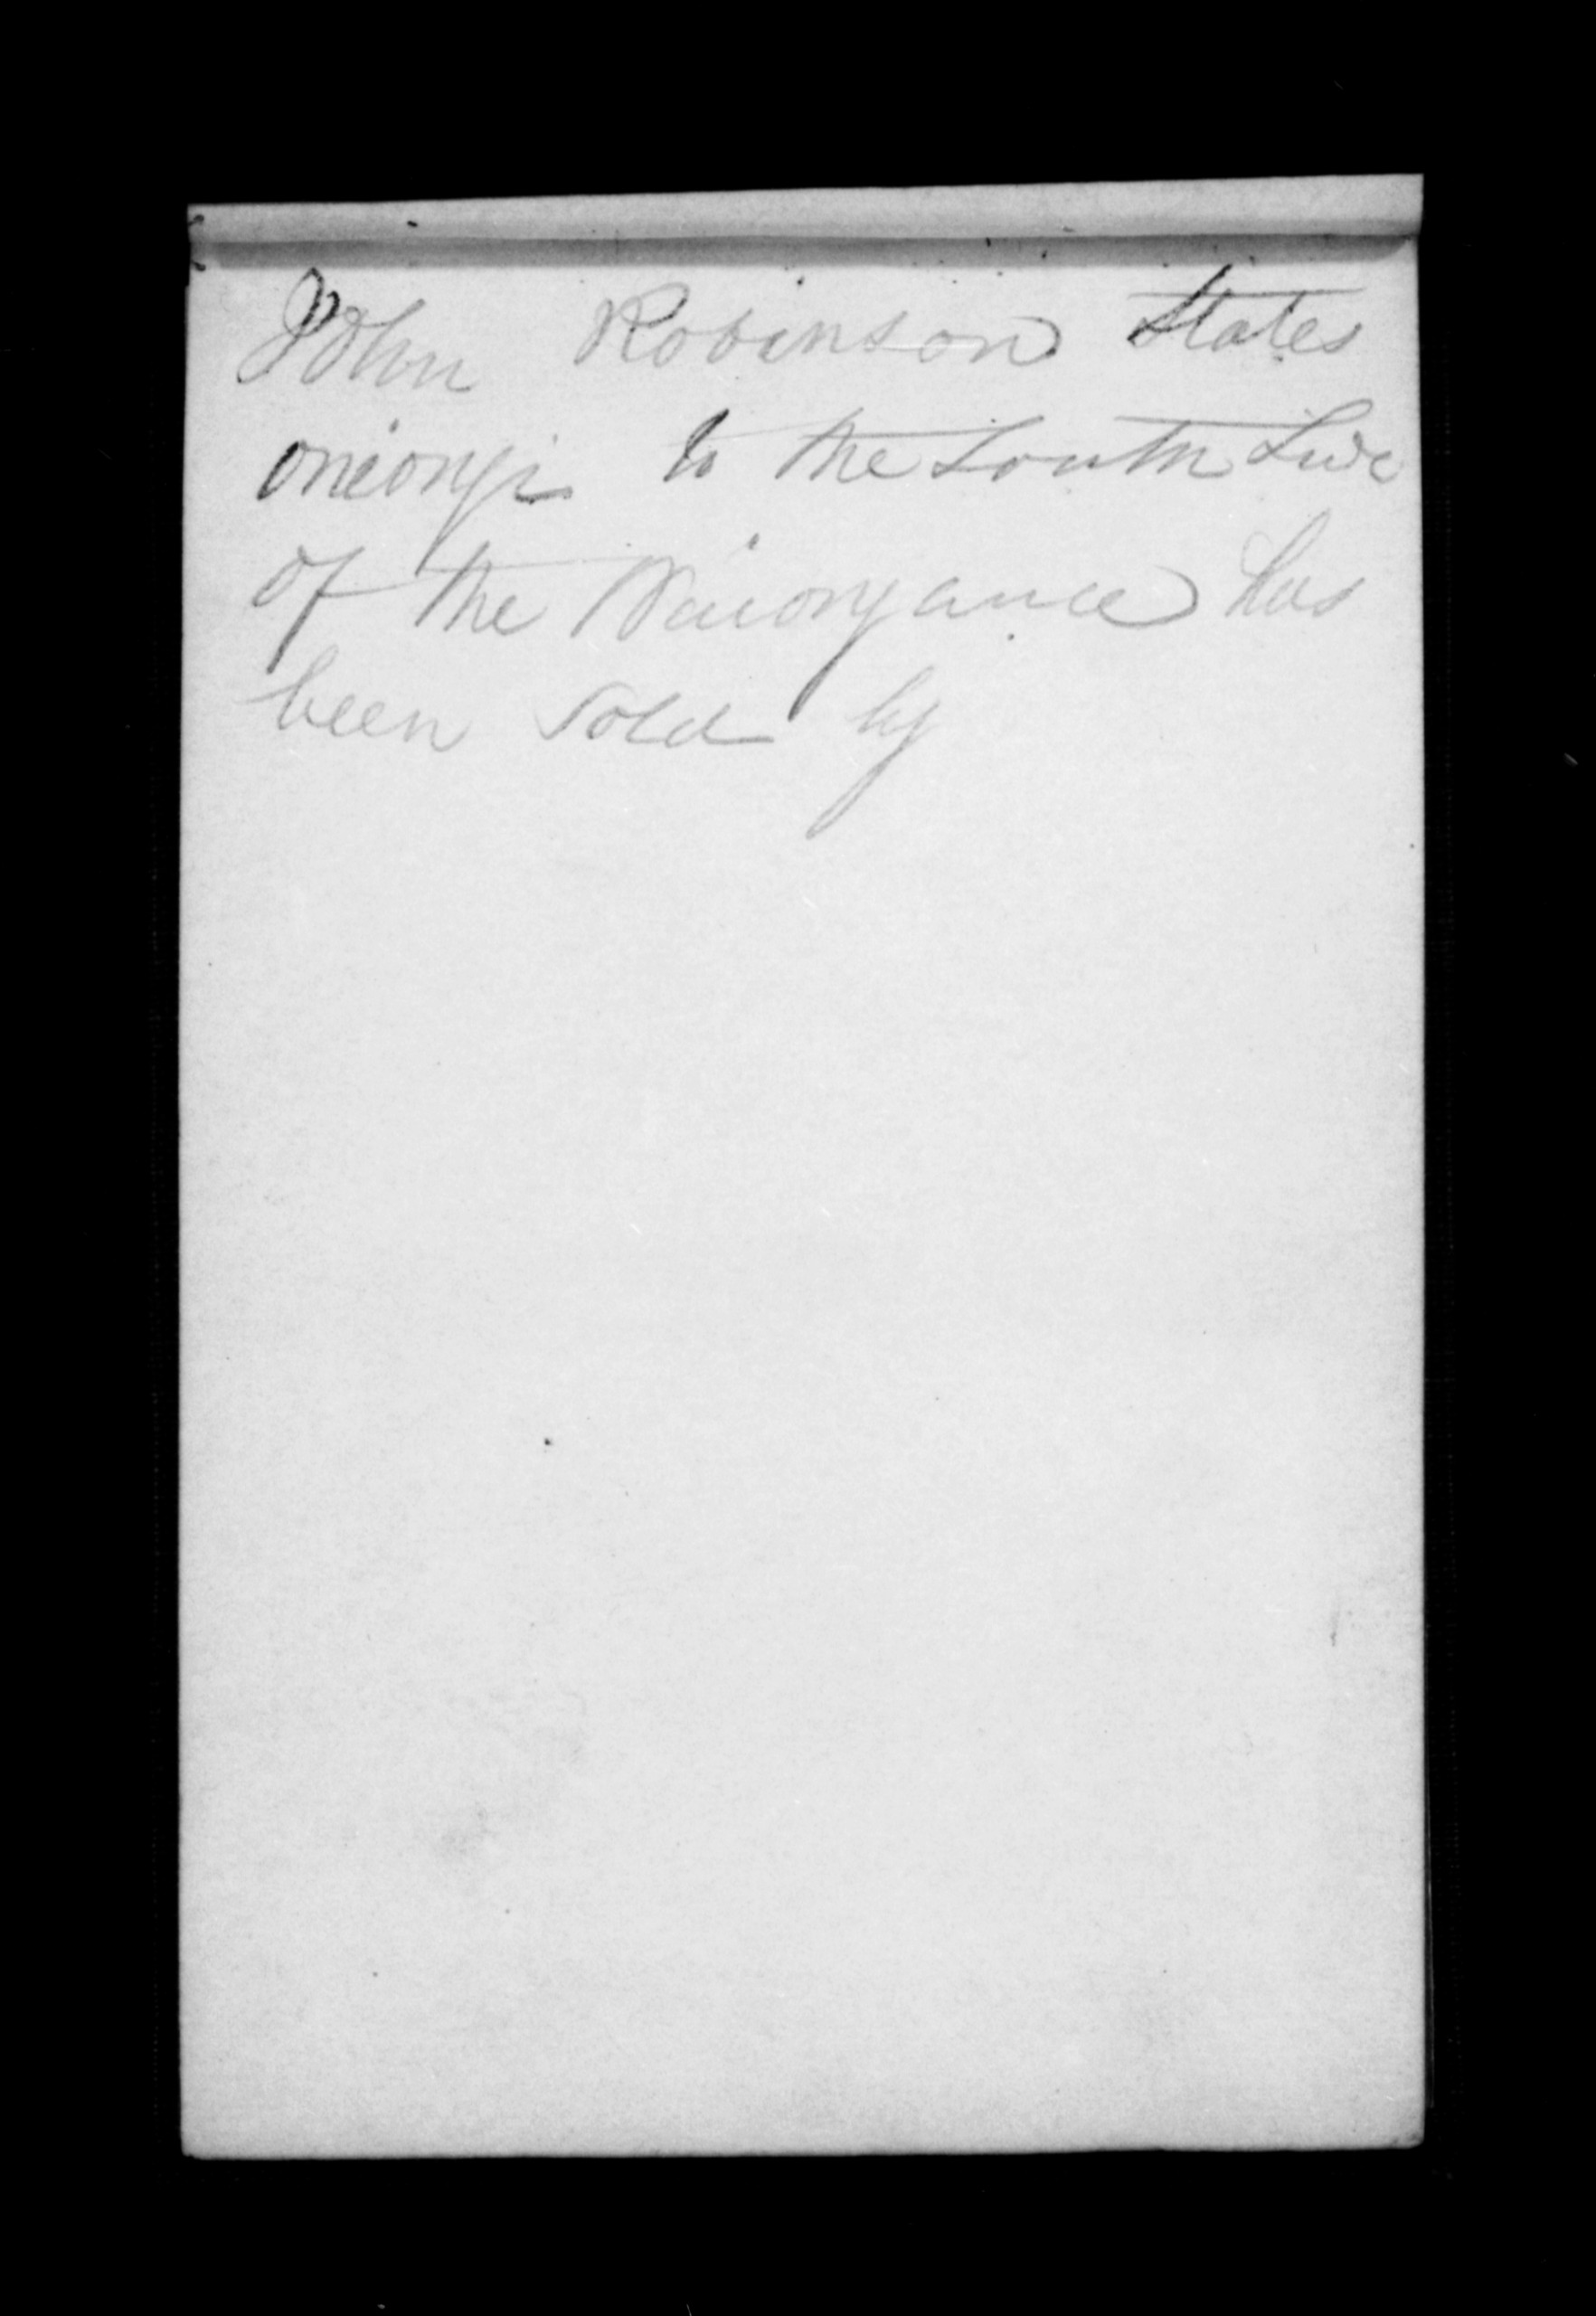 John Robinson States
oneonji to the South Side
of the Waiongana has
been sold by